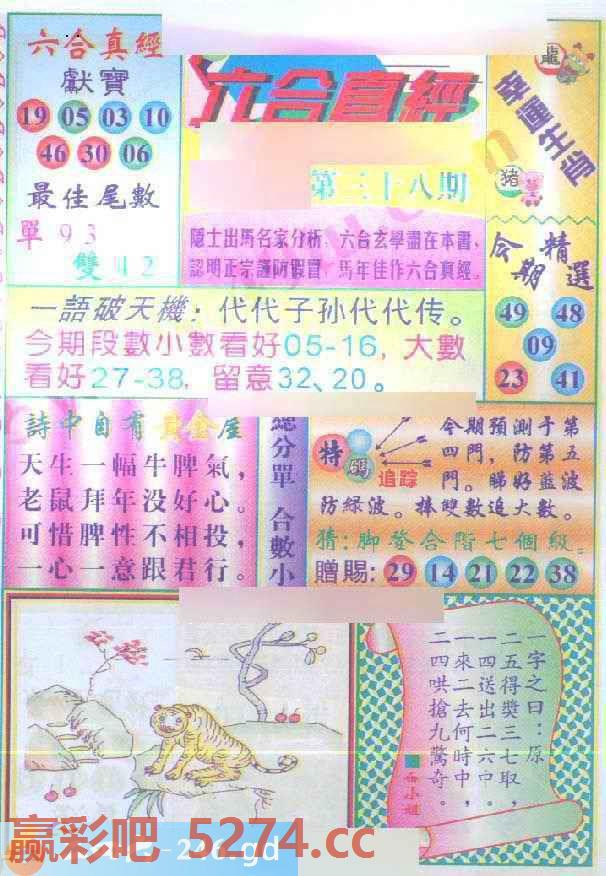 六合真經
獻寶
19 05 03 10
46 30 06
最佳尾數
單 9 3
雙 2
六合真經
第三十八期
隱士出馬名家分析，六合玄學盡在本書，
認明正宗謹防假冒，馬年佳作六合真經。
龍
幸運生肖
猪
今期精選
49 48
09
23 41
一語破天機：代代子孙代代传。
今期段數小數看好05-16，大數
看好27-38，留意32、20。
詩中自有黃金屋
天生一幅牛脾氣，
老鼠拜年没好心。
可惜脾性不相投，
一心一意跟君行。
總分單 合數小
特碼
追踪
今期預測于第
四門，防第五
門。睇好藍波
防緑波。捧雙數追大數。
猜：脚登合階七個級。
贈賜：29 14 21 22 38
一字之曰：原
二五得獎三七取，
一四送出二六中。
一來二去何時中，
二四哄搶九驚奇。
小姐
赢彩吧 5274.cc
246.gd